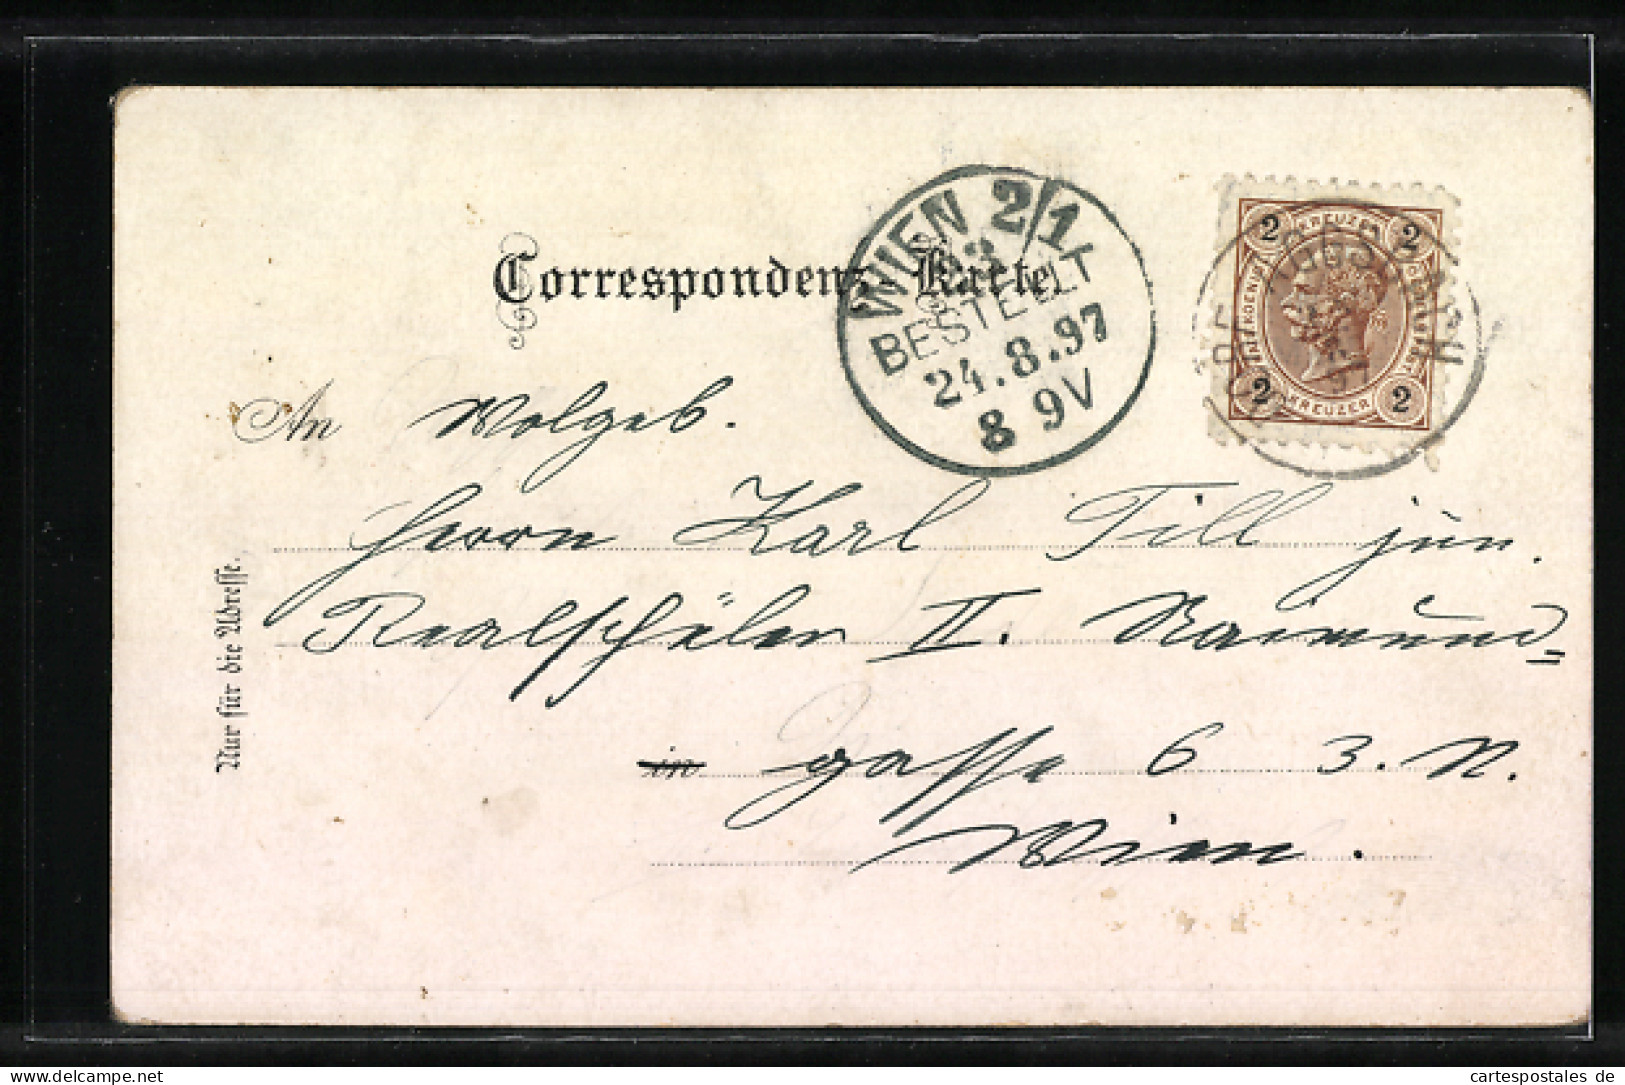 Correspondenz-Karte
WIEN 2/1
BESTELLT
24.8.97
8 9V
2 KREUZER 2
2 KREUZER 2
An Wolgeb.
Herrn Karl Till jun.
Realschüler II. Raimund=
in gasse 6 3. N.
Wien.
Nur für die Adresse.
ak-ansichtskarten.de
cartespostales.de